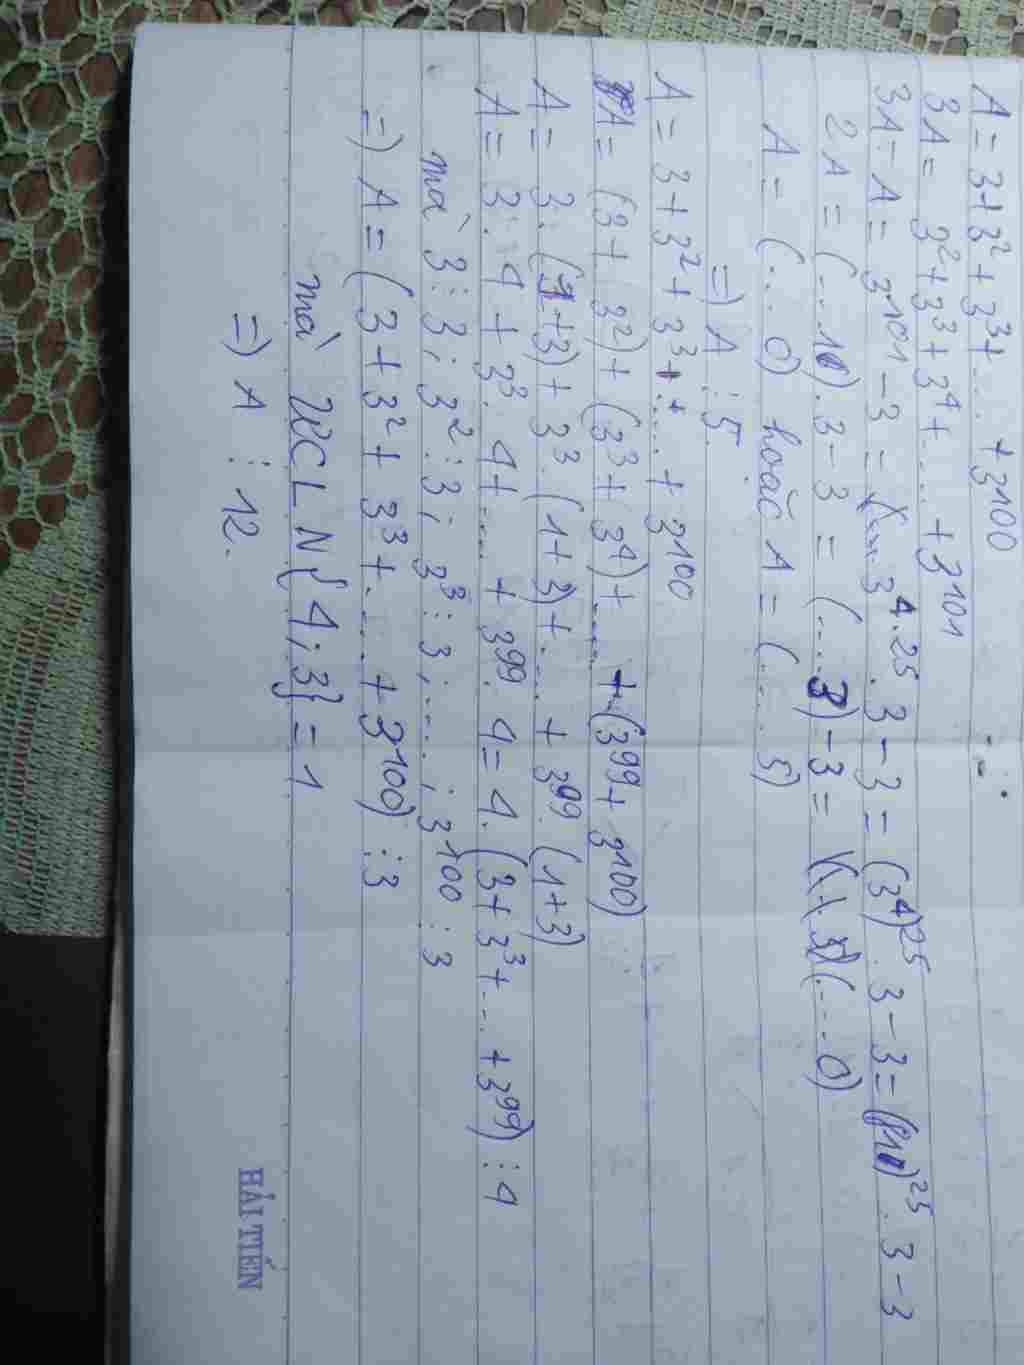 A = 3+3² + 3³+ ... +3100
3A = 3²+3³+3⁴+ ... +3101
3A-A = 3101-3 = 3⁴.25.3-3 = (3⁴)25.3-3 = 25.3-3
2A = (...1).3-3 = (...3)-3 = (...0)
A = (...0) hoặc A = (...5)
=) A ⋮ 5.
A = 3+3²+3³+ ... +3100
A = (3+3²)+(3³+3⁴)+ ... +(399+3100)
A = 3.(1+3)+3³.(1+3)+ ... +399.(1+3)
A = 3.4+3³.4+ ... +399.4=4.(3+3³+ ... +399) ⋮ 4
mà 3⋮3; 3²⋮3; 3³⋮3; ... ; 3100⋮3
=) A = (3+3²+3³+ ... +3100) ⋮ 3
mà ƯCLN{4;3}=1
=) A ⋮ 12.
HẢI TIẾN